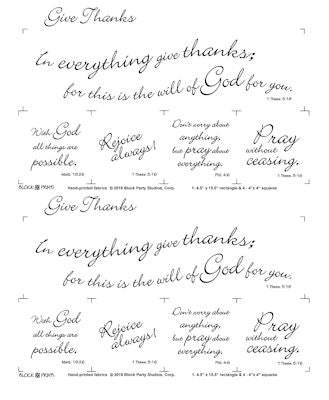 Give Thanks
In everything give thanks;
for this is the will of God for you.
1 Thess. 5:18
With God
all things are
possible.
Matt. 19:26
Rejoice
always!
1 Thess. 5:16
Don't worry about
anything,
but pray about
everything.
Phil. 4:6
Pray
without
ceasing.
1 Thess. 5:17
BLOCK PARTY Hand-printed fabrics © 2018 Block Party Studios, Corp. 1- 4.5" x 15.5" rectangle & 4 - 4"x 4" squares
Give Thanks
In everything give thanks;
for this is the will of God for you.
1 Thess. 5:18
With God
all things are
possible.
Matt. 19:26
Rejoice
always!
1 Thess. 5:16
Don't worry about
anything,
but pray about
everything.
Phil. 4:6
Pray
without
ceasing.
1 Thess. 5:17
Hand-printed fabrics © 2018 Block Party Studios, Corp. 1- 4.5" x 15.5" rectangle & 4 - 4"x 4" squares